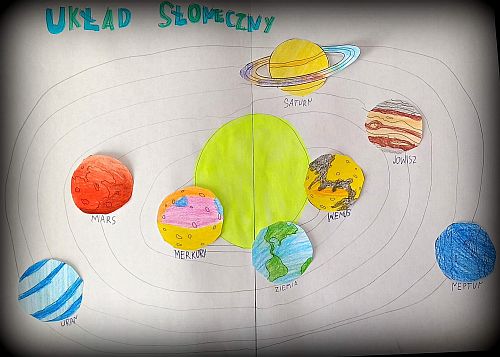 UKŁAD SŁONECZNY
SATURN
JOWISZ
MARS
MERKURY
WENUS
ZIEMIA
URAN
NEPTUN